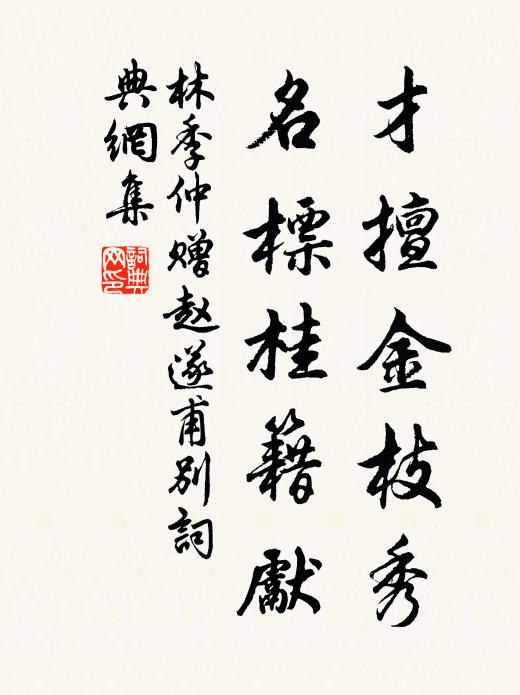 才擅金枝秀
名標桂籍獻
林季仲赠赵遂甫别詞
典網集
詞典
网印